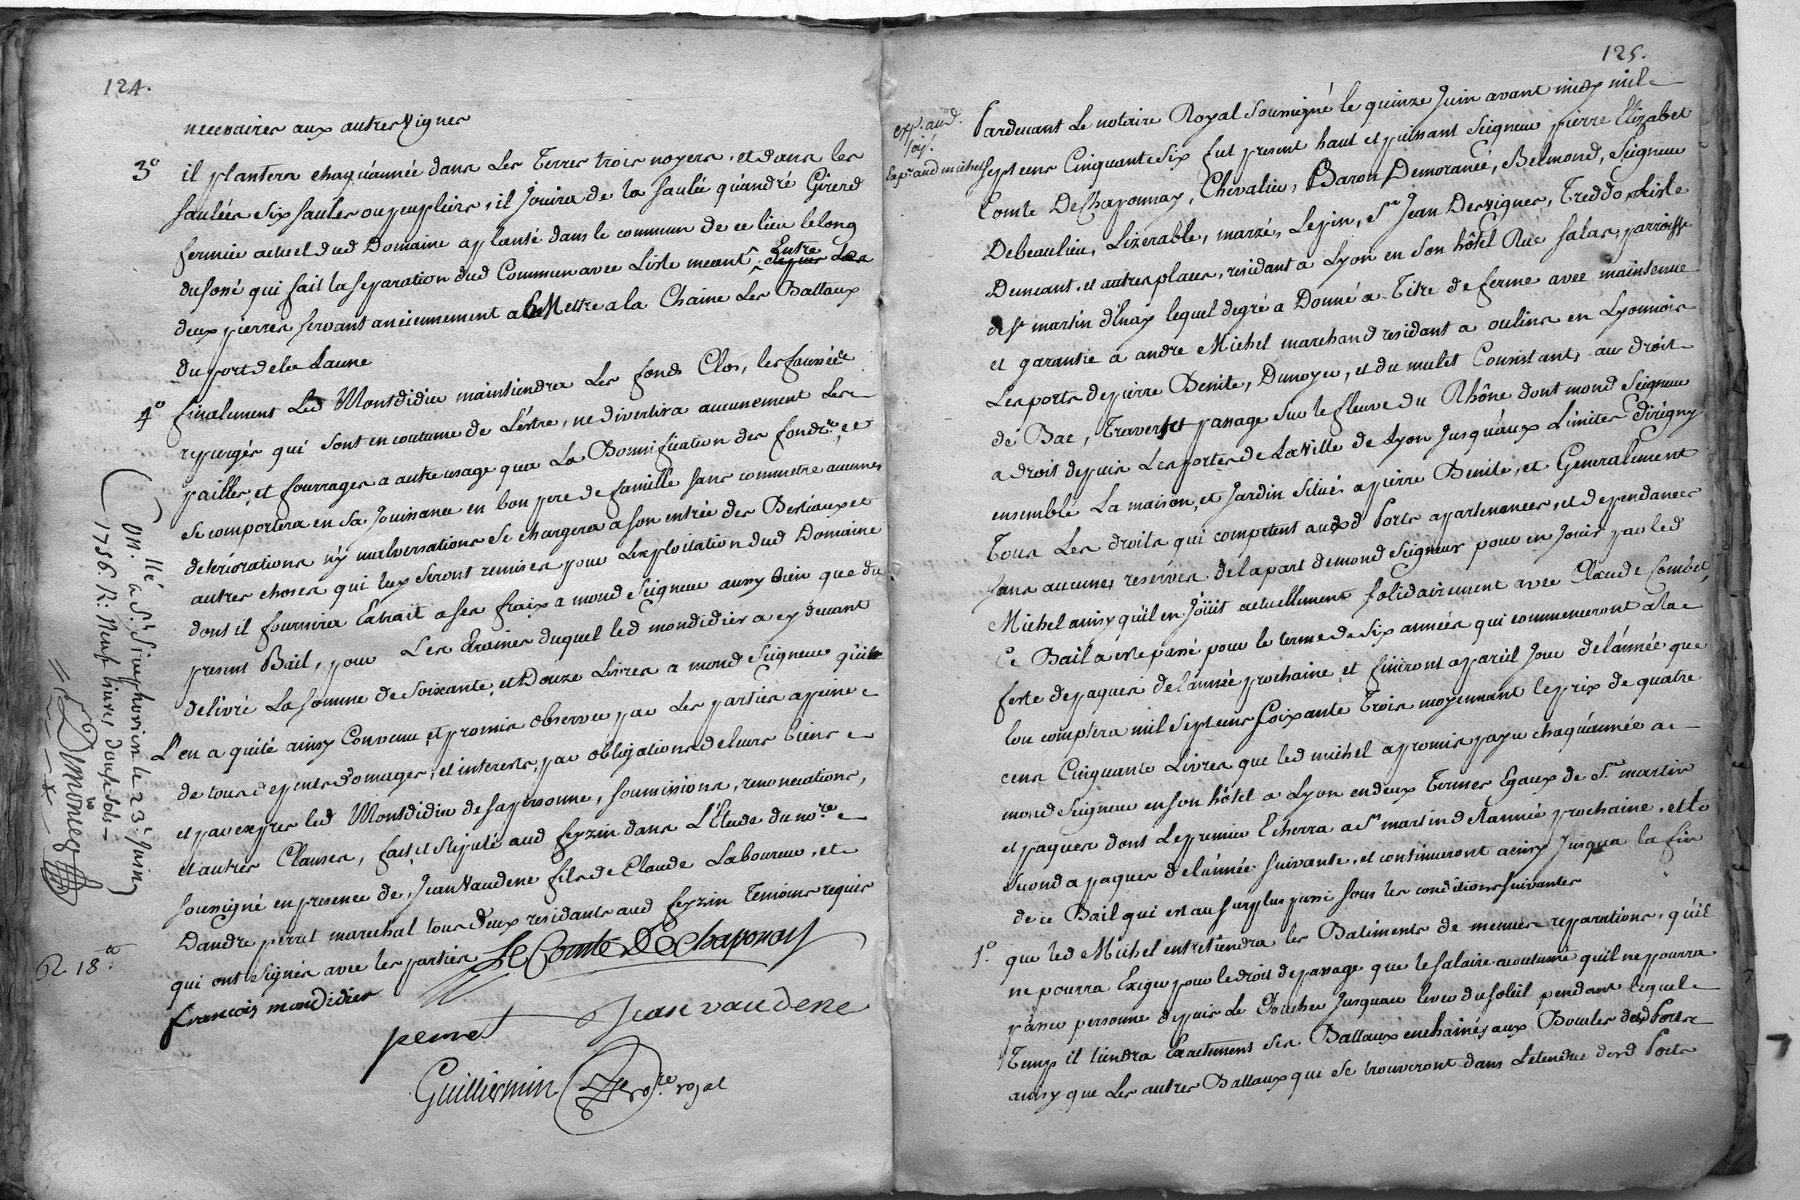 124.
necessaires aux autres Vignes
3° il plantera chaquánnée dans Les Terres trois noyers, et dans les
saulées six saules ou peupliers, il Joüira de la saulée quándré Girerd
fermier actuel dud Domaine a planté dans le commun de ce lieu le long
du fossé qui fait la separation dud Commun avec Liste Entre Les
deux pierres servant anciennement a Mettre a la Chaine Les Battaux
du port de la Laune
4° finalement Led Montdidier maintiendra Les fonds Clos, les fossés
repurgés qui sont en coutume de L'être, ne divertira aucunement Les
pailles, et fourrages a autre usage qua La Bonnification des fonds, et
se comportera en sa Jouissance en bon pere de famille sans commettre aucunes
deteriorations n'y malversations se chargera a son entrée des Bestiaux et
autres choses qui luy seront remises pour L'exploitation dud Domaine
dont il fournira Extrait a ses fraix a mond Seigneur aussy bien que du
present Bail, pour Les Etraines duquel led mondidier a cy devant
delivré La somme de Soixante, et Douze Livres a mond Seigneur qui
L'en a quité ainsy Convenu, et promis observer par Les parties a peine
de tous depents domages, et interests, par obligations de leurs biens
et par exprès led Montdidier de sa personne, soumissions, renonciations,
et autres Clauses, fait et stipulé aud feyzin dans L'Etude du no.re
soussigné en presence de Jean Vaudene fils de Claude Laboureur, et
Dandre perret marechal tous deux residants aud feyzin Temoins requis
qui ont signés avec les parties Le Comte DeChaponay
françois mondidier
perret Jean vaudene
Guilliermin no.re royal
On. llé a St. Simphorien le 23e. Juin
1756. R: Neuf livres douze sols
R 18
125.
exp. aud.
Pardevant Le notaire Royal soussigné le quinze Juin avant midy mil
Exp. aud michel sept cens Cinquante six fut present haut et puissant Seigneur pierre Elizabet
Comte DeChaponnay, Chevalier, Baron Demorancé, Belmond, Seigneur
Debeaulieu, Lizerable, marzé, Lepin, St Jean Desvignes, Feyzin, Liste
Demeant, et autres places, residant a Lyon en son hôtel Rue Salas, parroisse
de St martin d'Enay lequel degré a Donné a Titre de ferme avec maintenue
et garantie a andre Michel marchand residant a oulins en Lyonnois
Les ports de pierre Benite, Dunoyer, et du mulet Consistant, au droit
de Bac, Traverse et passage sur le fleuve du Rhône dont mond Seigneur
a droit depuis Les portes de La Ville de Lyon Jusquáux Limites d'irigny
ensemble La maison, et Jardin situés a pierre Benite, et Generalement
Tous Les droits qui competent auxd Ports apartenances, et dependances
sans aucunes reserves de la part de mond Seigneur pour en Joüir par led
Michel ainsy qu'il en Joüit actuellement solidairement avec Claude Combet,
Ce Bail a été passé pour le terme de Six années qui commenceront a la
feste de paques de l'année prochaine, et finiront a pareil Jour de l'année que
lon comptera mil sept cens soixante Trois moyennant le prix de quatre
cens Cinquante Livres que led michel a promis payer chaquánnée a
mond Seigneur en son hôtel a Lyon en deux Termes Egaux de St. martin
et paques dont Le premier Echerra a St martin de l'année prochaine, et le
second a paques de l'année suivante, et continueront ainsy Jusqua la fin
de ce Bail qui est au surplus passé sous les conditions suivantes
1°. que led Michel entretiendra les Batiments de menues reparations, qu'il
ne pourra Exiger pour le droit de passage que le salaire acoutumé qu'il ne pourra
passer personne depuis Le Coucher Jusquau lever du soleil pendant lequel
Temps il tiendra Exactement ses Battaux enchainés aux Boucles desd Ports
ainsy que Les autres Battaux qui se trouveront dans L'etendue desd Ports